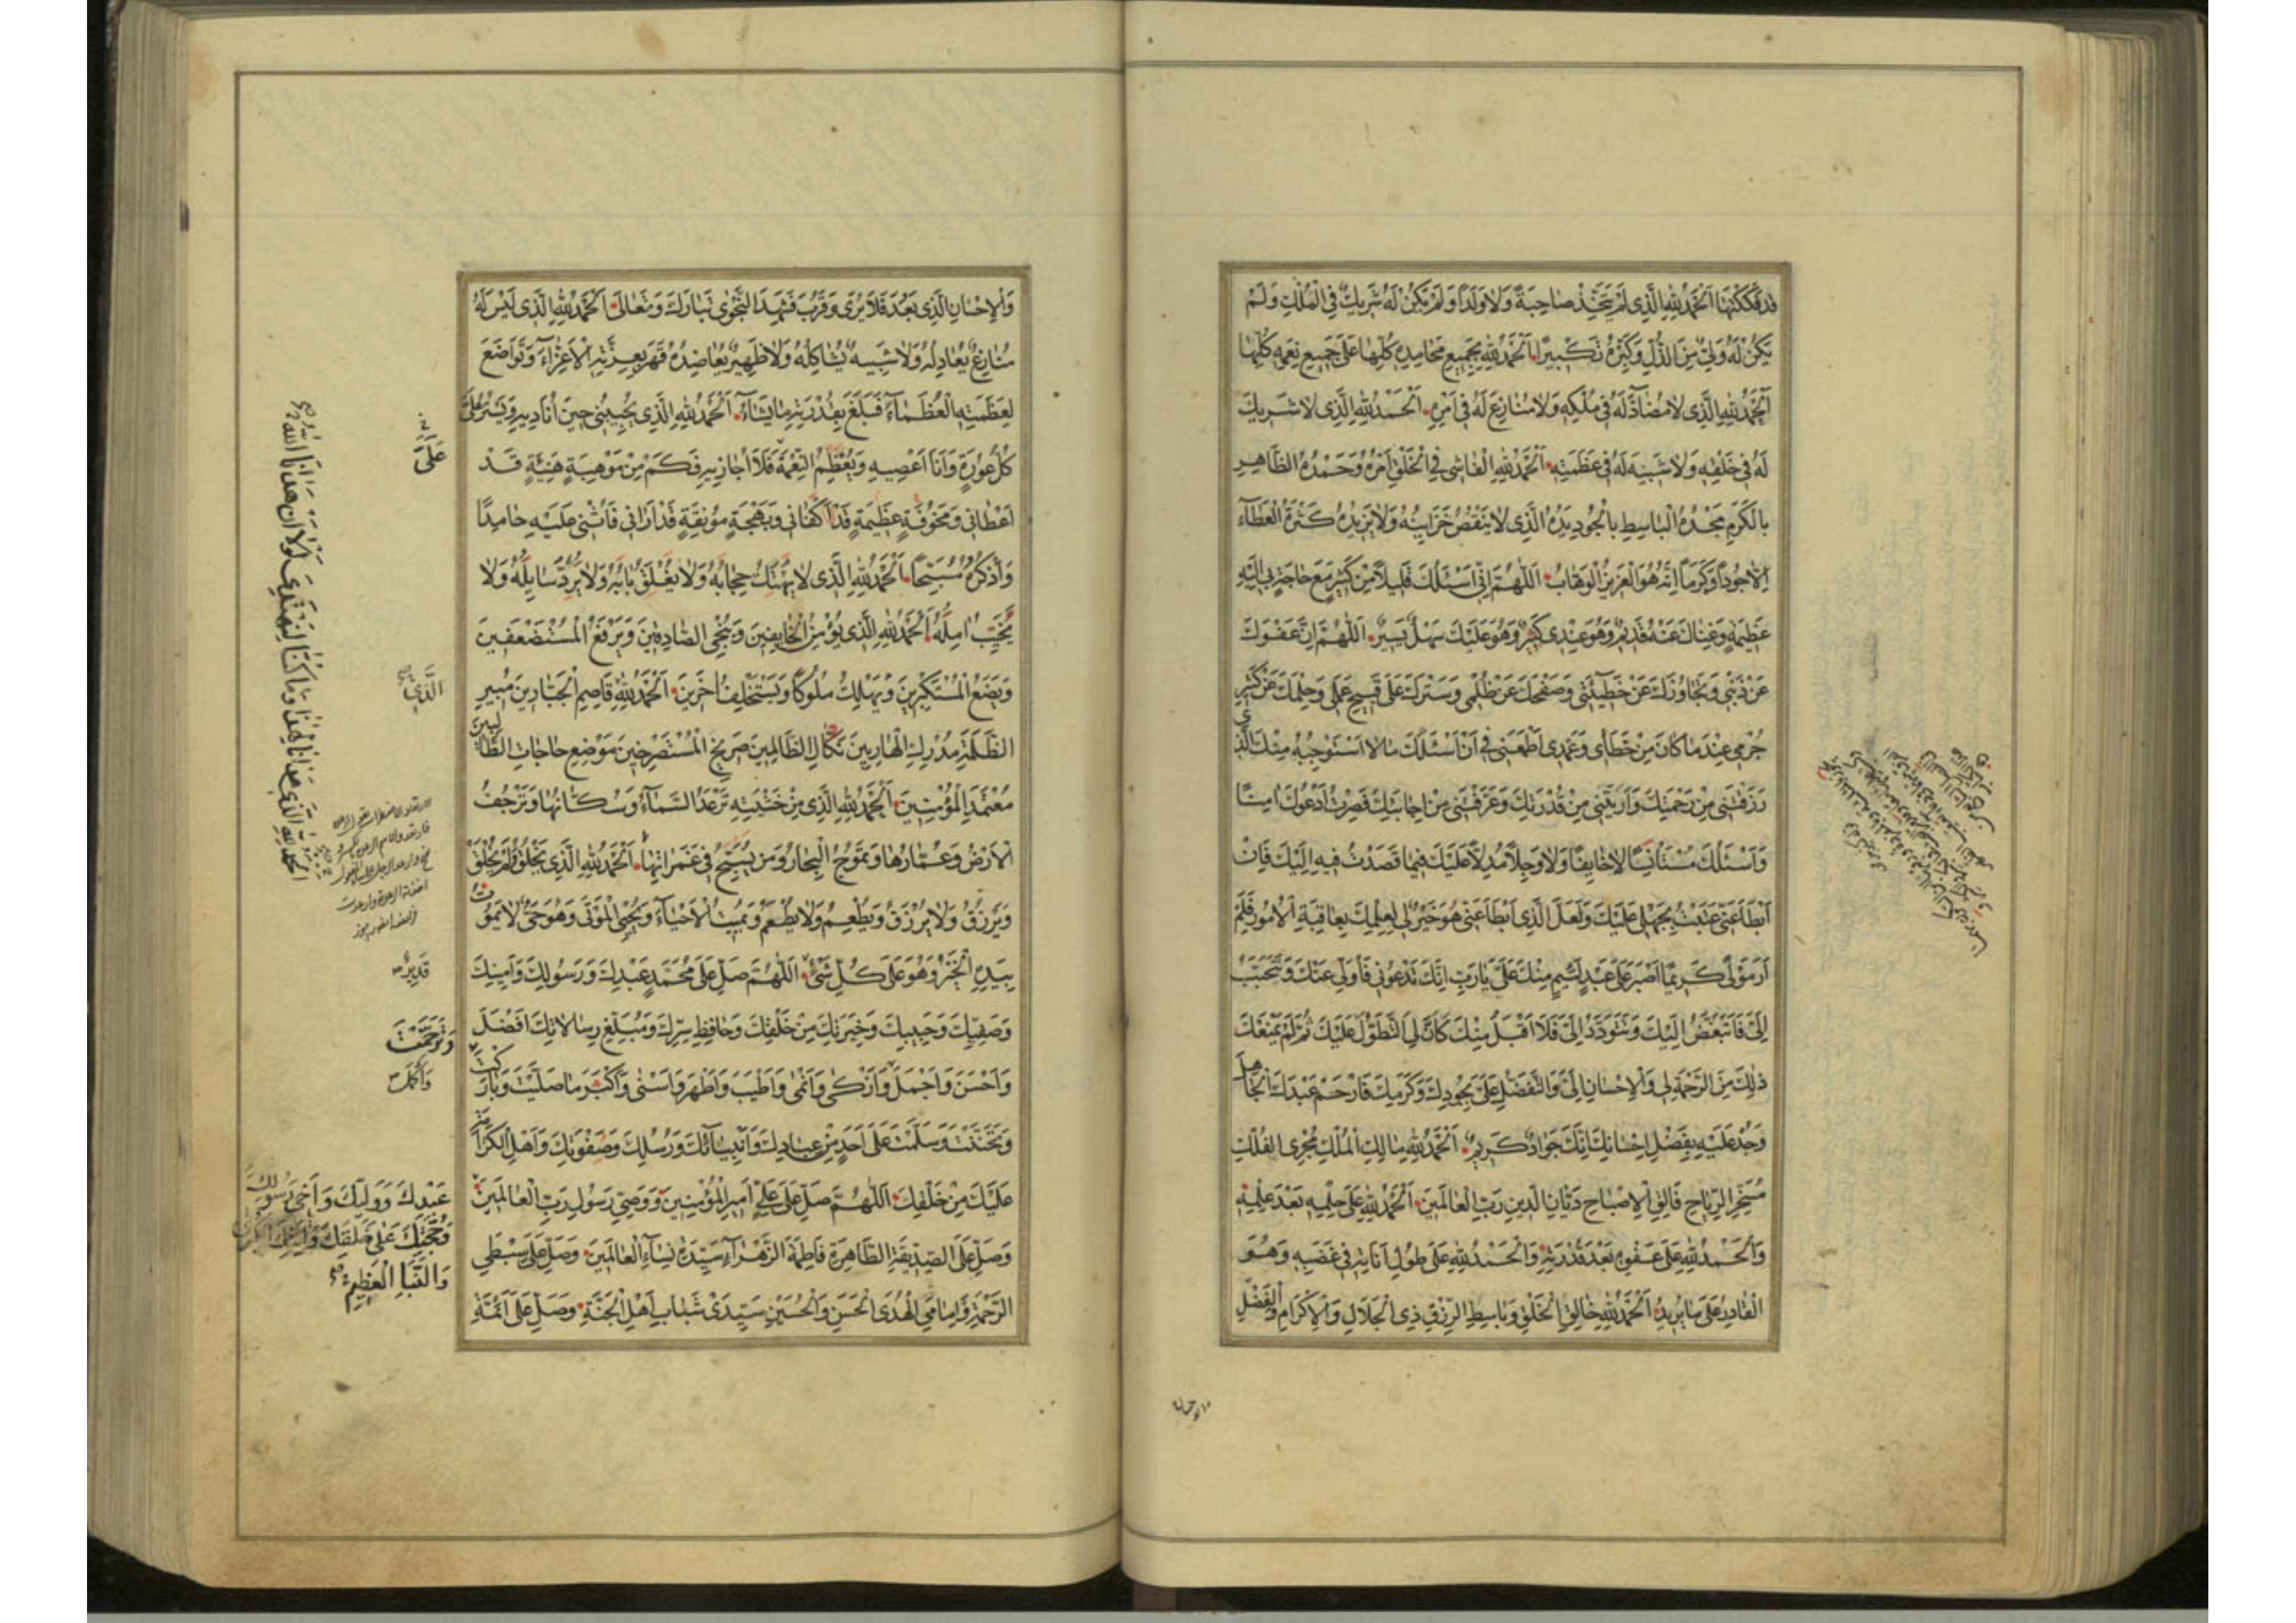 قَد فَكَكْتَهَا اَلْحَمْدُ لِلّٰهِ الَّذِى لَمْ يَتَّخِذْ صَاحِبَةً وَلَا وَلَدًا وَلَمْ يَكُنْ لَهُ شَرِيكٌ فِى الْمُلْكِ وَلَمْ
يَكُنْ لَهُ وَلِيٌّ مِنَ الذُّلِّ وَكَبِّرْهُ تَكْبِيرًا اَلْحَمْدُ لِلّٰهِ بِجَمِيعِ مَحَامِدِهِ كُلِّهَا عَلَى جَمِيعِ نِعَمِهِ كُلِّهَا
اَلْحَمْدُ لِلّٰهِ الَّذِى لَا مُضَادَّ لَهُ فِى مُلْكِهِ وَلَا مُنَازِعَ لَهُ فِى اَمْرِهِ اَلْحَمْدُ لِلّٰهِ الَّذِى لَا شَرِيكَ
لَهُ فِى خَلْقِهِ وَلَا شَبِيهَ لَهُ فِى عَظَمَتِهِ اَلْحَمْدُ لِلّٰهِ الْفَاشِى فِى الْخَلْقِ اَمْرُهُ وَحَمْدُهُ الظَّاهِرِ
بِالْكَرَمِ مَجْدُهُ الْبَاسِطِ بِالْجُودِ يَدَهُ الَّذِى لَا يَنْقُصُ خَزَايِنُهُ وَلَا يَزِيدُهُ كَثْرَةُ الْعَطَآءِ
اِلَّا جُودًا وَكَرَمًا اِنَّهُ هُوَ الْعَزِيزُ الْوَهَّابُ اَللّٰهُمَّ اِنِّى اَسْئَلُكَ قَلِيلًا مِنْ كَثِيرٍ مَعَ حَاجَةٍ بِى اِلَيْهِ
عَظِيمَةٍ وَغِنَاكَ عَنْهُ قَدِيمٌ وَهُوَ عِنْدِى كَثِيرٌ وَهُوَ عَلَيْكَ سَهْلٌ يَسِيرٌ اَللّٰهُمَّ اِنَّ عَفْوَكَ
عَنْ ذَنْبِى وَتَجَاوُزَكَ عَنْ خَطِيئَتِى وَصَفْحَكَ عَنْ ظُلْمِى وَسَتْرَكَ عَلَى قَبِيحِ عَمَلِى وَحِلْمَكَ عَنْ كَثِيرِ
جُرْمِى عِنْدَ مَا كَانَ مِنْ خَطَأى وَعَمْدِى اَطْمَعَنِى فِى اَنْ اَسْئَلَكَ مَا لَا اَسْتَوْجِبُهُ مِنْكَ الَّذِى
رَزَقْتَنِى مِنْ رَحْمَتِكَ وَاَرَيْتَنِى مِنْ قُدْرَتِكَ وَعَرَّفْتَنِى مِنْ اِجَابَتِكَ فَصِرْتُ اَدْعُوكَ اٰمِنًا
وَاَسْئَلُكَ مُسْتَأْنِسًا لَا خَايِفًا وَلَا وَجِلًا مُدِلًّا عَلَيْكَ فِيمَا قَصَدْتُ فِيهِ اِلَيْكَ فَاِنْ
اَبْطَأَ عَنِّى عَتَبْتُ بِجَهْلِى عَلَيْكَ وَلَعَلَّ الَّذِى اَبْطَأَ عَنِّى هُوَ خَيْرٌ لِى لِعِلْمِكَ بِعَاقِبَةِ الْاُمُورِ فَلَمْ
اَرَ مَوْلًى كَرِيمًا اَصْبَرَ عَلَى عَبْدٍ لَئِيمٍ مِنْكَ عَلَيَّ يَا رَبِّ اِنَّكَ تَدْعُونِى فَاُوَلِّى عَنْكَ وَتَتَحَبَّبُ
اِلَىَّ فَاَتَبَغَّضُ اِلَيْكَ وَتَتَوَدَّدُ اِلَىَّ فَلَا اَقْبَلُ مِنْكَ كَاَنَّ لِىَ التَّطَوُّلَ عَلَيْكَ ثُمَّ لَمْ يَمْنَعْكَ
ذٰلِكَ مِنَ الرَّحْمَةِ لِى وَالْاِحْسَانِ اِلَىَّ وَالتَّفَضُّلِ عَلَىَّ بِجُودِكَ وَكَرَمِكَ فَارْحَمْ عَبْدَكَ الْجَاهِلَ
وَجُدْ عَلَيْهِ بِفَضْلِ اِحْسَانِكَ اِنَّكَ جَوَادٌ كَرِيمٌ اَلْحَمْدُ لِلّٰهِ مَالِكِ الْمُلْكِ مُجْرِى الْفُلْكِ
مُسَخِّرِ الرِّيَاحِ فَالِقِ الْاِصْبَاحِ دَيَّانِ الدِّينِ رَبِّ الْعَالَمِينَ اَلْحَمْدُ لِلّٰهِ عَلَى حِلْمِهِ بَعْدَ عِلْمِهِ
وَالْحَمْدُ لِلّٰهِ عَلَى عَفْوِهِ بَعْدَ قُدْرَتِهِ وَالْحَمْدُ لِلّٰهِ عَلَى طُولِ اَنَاتِهِ فِى غَضَبِهِ وَهُوَ
الْقَادِرُ عَلَى مَا يُرِيدُ اَلْحَمْدُ لِلّٰهِ خَالِقِ الْخَلْقِ وَبَاسِطِ الرِّزْقِ ذِى الْجَلَالِ وَالْاِكْرَامِ وَالْفَضْلِ
وَالْاِحْسَانِ الَّذِى بَعُدَ فَلَا يُرَى وَقَرُبَ فَشَهِدَ النَّجْوٰى تَبَارَكَ وَتَعَالٰى اَلْحَمْدُ لِلّٰهِ الَّذِى لَيْسَ لَهُ
مُنَازِعٌ يُعَادِلُهُ وَلَا شَبِيهٌ يُشَاكِلُهُ وَلَا ظَهِيرٌ يُعَاضِدُهُ قَهَرَ بِعِزَّتِهِ الْاَعِزَّآءَ وَتَوَاضَعَ
لِعَظَمَتِهِ الْعُظَمَآءُ فَبَلَغَ بِقُدْرَتِهِ مَا يَشَآءُ اَلْحَمْدُ لِلّٰهِ الَّذِى يُجِيبُنِى حِينَ اُنَادِيهِ وَيَسْتُرُ عَلَىَّ
كُلَّ عَوْرَةٍ وَاَنَا اَعْصِيهِ وَيُعَظِّمُ النِّعْمَةَ فَلَا اُجَازِيهِ فَكَمْ مِنْ مَوْهِبَةٍ هَنِيئَةٍ قَدْ
اَعْطَانِى وَمَخُوفَةٍ عَظِيمَةٍ قَدْ كَفَانِى وَبَهْجَةٍ مُونِقَةٍ قَدْ اَرَانِى فَاُثْنِى عَلَيْهِ حَامِدًا
وَاَذْكُرُهُ مُسَبِّحًا اَلْحَمْدُ لِلّٰهِ الَّذِى لَا يُهْتَكُ حِجَابُهُ وَلَا يُغْلَقُ بَابُهُ وَلَا يُرَدُّ سَايِلُهُ وَلَا
يُخَيَّبُ اٰمِلُهُ اَلْحَمْدُ لِلّٰهِ الَّذِى يُؤْمِنُ الْخَايِفِينَ وَيُنَجِّى الصَّادِقِينَ وَيَرْفَعُ الْمُسْتَضْعَفِينَ
وَيَضَعُ الْمُسْتَكْبِرِينَ وَيُهْلِكُ مُلُوكًا وَيَسْتَخْلِفُ اٰخَرِينَ اَلْحَمْدُ لِلّٰهِ قَاصِمِ الْجَبَّارِينَ مُبِيرِ
الظَّلَمَةِ مُدْرِكِ الْهَارِبِينَ نَكَالِ الظَّالِمِينَ صَرِيخِ الْمُسْتَصْرِخِينَ مَوْضِعِ حَاجَاتِ الطَّالِبِينَ
مُعْتَمَدِ الْمُؤْمِنِينَ اَلْحَمْدُ لِلّٰهِ الَّذِى مِنْ خَشْيَتِهِ تَرْعَدُ السَّمَآءُ وَسُكَّانُهَا وَتَرْجُفُ
الْاَرْضُ وَعُمَّارُهَا وَتَمُوجُ الْبِحَارُ وَمَنْ يُسَبِّحُ فِى غَمَرَاتِهَا اَلْحَمْدُ لِلّٰهِ الَّذِى يَخْلُقُ وَلَمْ يُخْلَقْ
وَيَرْزُقُ وَلَا يُرْزَقُ وَيُطْعِمُ وَلَا يُطْعَمُ وَيُمِيتُ الْاَحْيَآءَ وَيُحْيِى الْمَوْتٰى وَهُوَ حَىٌّ لَا يَمُوتُ
بِيَدِهِ الْخَيْرُ وَهُوَ عَلَى كُلِّ شَىْءٍ اَللّٰهُمَّ صَلِّ عَلَى مُحَمَّدٍ عَبْدِكَ وَرَسُولِكَ وَاَمِينِكَ
وَصَفِيِّكَ وَحَبِيبِكَ وَخِيَرَتِكَ مِنْ خَلْقِكَ وَحَافِظِ سِرِّكَ وَمُبَلِّغِ رِسَالَاتِكَ اَفْضَلَ
وَاَحْسَنَ وَاَجْمَلَ وَاَزْكٰى وَاَنْمٰى وَاَطْيَبَ وَاَطْهَرَ وَاَسْنٰى وَاَكْثَرَ مَا صَلَّيْتَ وَبَارَكْتَ
وَتَحَنَّنْتَ وَسَلَّمْتَ عَلَى اَحَدٍ مِنْ عِبَادِكَ وَاَنْبِيَآئِكَ وَرُسُلِكَ وَصَفْوَتِكَ وَاَهْلِ الْكَرَامَةِ
عَلَيْكَ مِنْ خَلْقِكَ اَللّٰهُمَّ صَلِّ عَلَى عَلِىٍّ اَمِيرِ الْمُؤْمِنِينَ وَوَصِىِّ رَسُولِ رَبِّ الْعَالَمِينَ
وَصَلِّ عَلَى الصِّدِّيقَةِ الطَّاهِرَةِ فَاطِمَةَ الزَّهْرَآءِ سَيِّدَةِ نِسَآءِ الْعَالَمِينَ وَصَلِّ عَلَى سِبْطَىِ
الرَّحْمَةِ وَاِمَامَىِ الْهُدَى الْحَسَنِ وَالْحُسَيْنِ سَيِّدَىْ شَبَابِ اَهْلِ الْجَنَّةِ وَصَلِّ عَلَى اَئِمَّةِ
عَلَىَّ
الَّذِى
الحمد لله الَّذِى هَدَانَا لِهٰذَا وَمَا كُنَّا لِنَهْتَدِىَ لَوْلَا اَنْ هَدَانَا اللّٰهُ
قَدِيرٌ
وَتَرَحَّمْتَ
وَاَكْمَلَ
عَبْدِكَ وَوَلِيِّكَ وَاَخِى رَسُولِكَ
وَحُجَّتِكَ عَلَى خَلْقِكَ وَاٰيَتِكَ الْكُبْرٰى
وَالنَّبَإِ الْعَظِيمِ